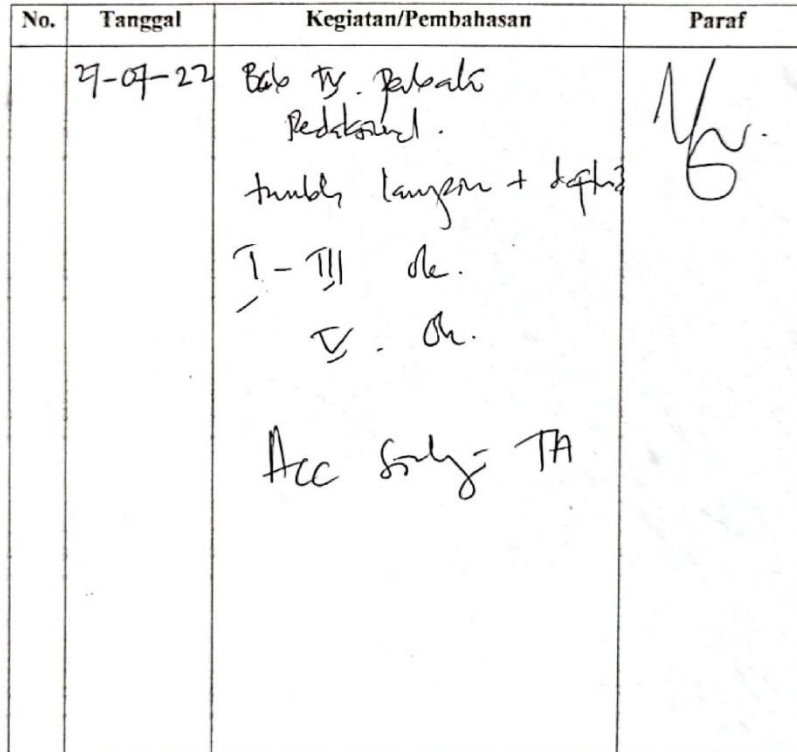 No. Tanggal Kegiatan/Pembahasan Paraf
27-07-22 Bab IV. Perbaiki
Redaksional.
tambah lampiran + daftar2
I - III ok.
V. Ok.
Acc Sidang TA